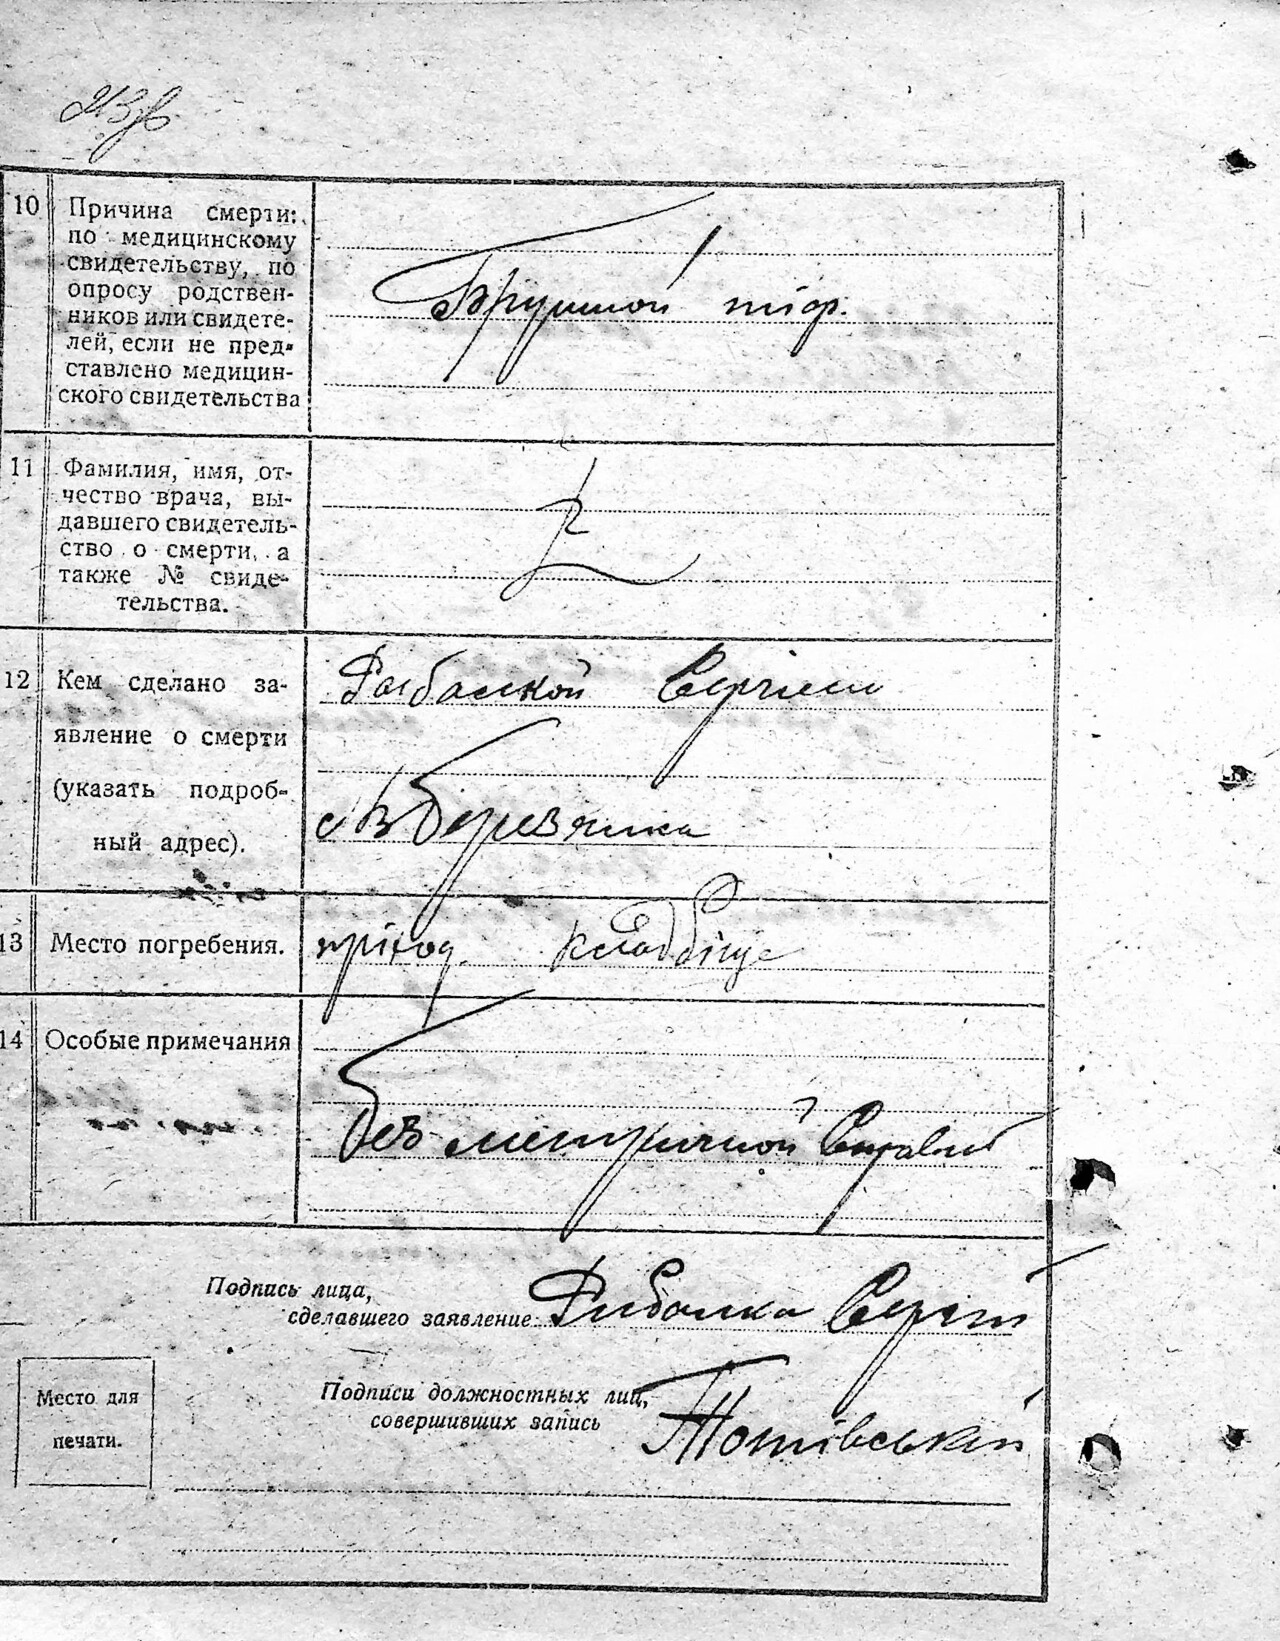 10 Причина смерти:
по медицинскому
свидетельству, по
опросу родствен-
ников или свидете-
лей, если не пред-
ставлено медицин-
ского свидетельства
Брушной тіф.
11 Фамилия, имя, от-
чество врача, вы-
давшего свидетель-
ство о смерти, а
также № свиде-
тельства.
12 Кем сделано за-
явление о смерти
(указать подроб-
ный адрес).
Рыбалкой Сергіем
с Веревянка
13 Место погребения.
пріход. кладбіще
14 Особые примечания
без метричной
Подпись лица,
сделавшего заявление:
Рибалка Сергій
Подписи должностных лиц,
совершивших запись
Место для
печати.